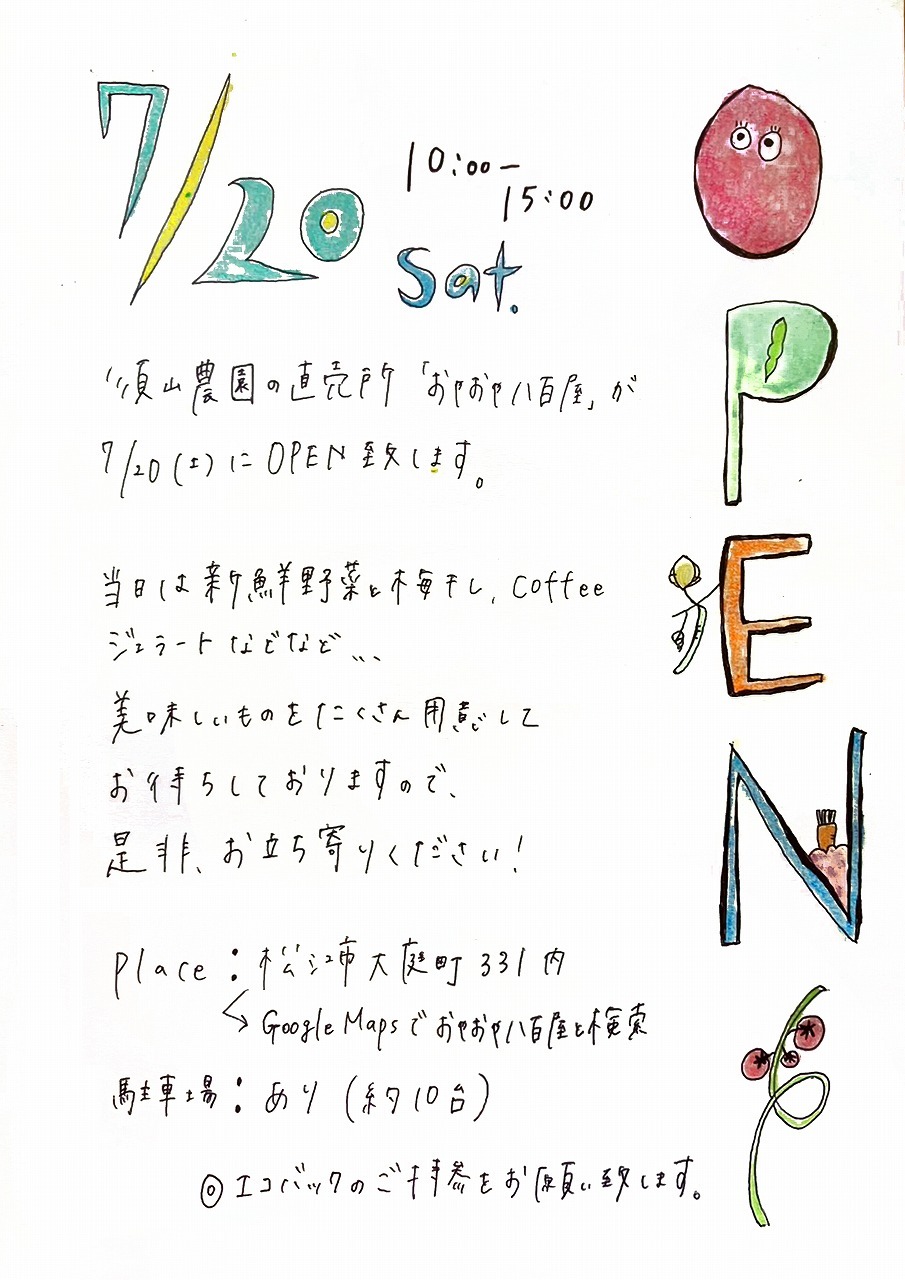 7/20
10:00-
15:00
sat.
OPEN
須山農園の直売所「おやおや八百屋」が
7/20(土)にOPEN致します。
当日は新鮮野菜と梅干し、coffee
ジェラートなどなど...
美味しいものをたくさん用意して
お待ちしておりますので、
是非、お立ち寄りください!
place:松江市大庭町331内
↳ Google Mapsでおやおや八百屋と検索
駐車場:あり(約10台)
◎エコバックのご持参をお願い致します。